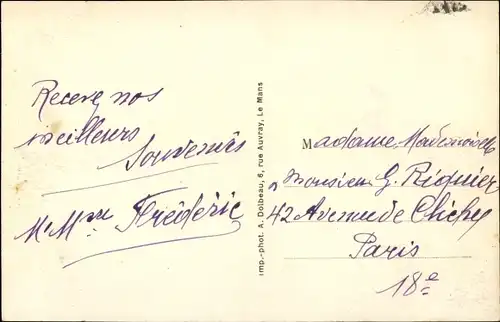 Recevez nos
meilleurs
Souvenirs
Mr Mme Frédéric
Imp.-phot. A. Dolbeau, 6, rue Auvray, Le Mans
Madame Mademoiselle
Monsieur G. Riquier
42 Avenue de Clichy
Paris
18e